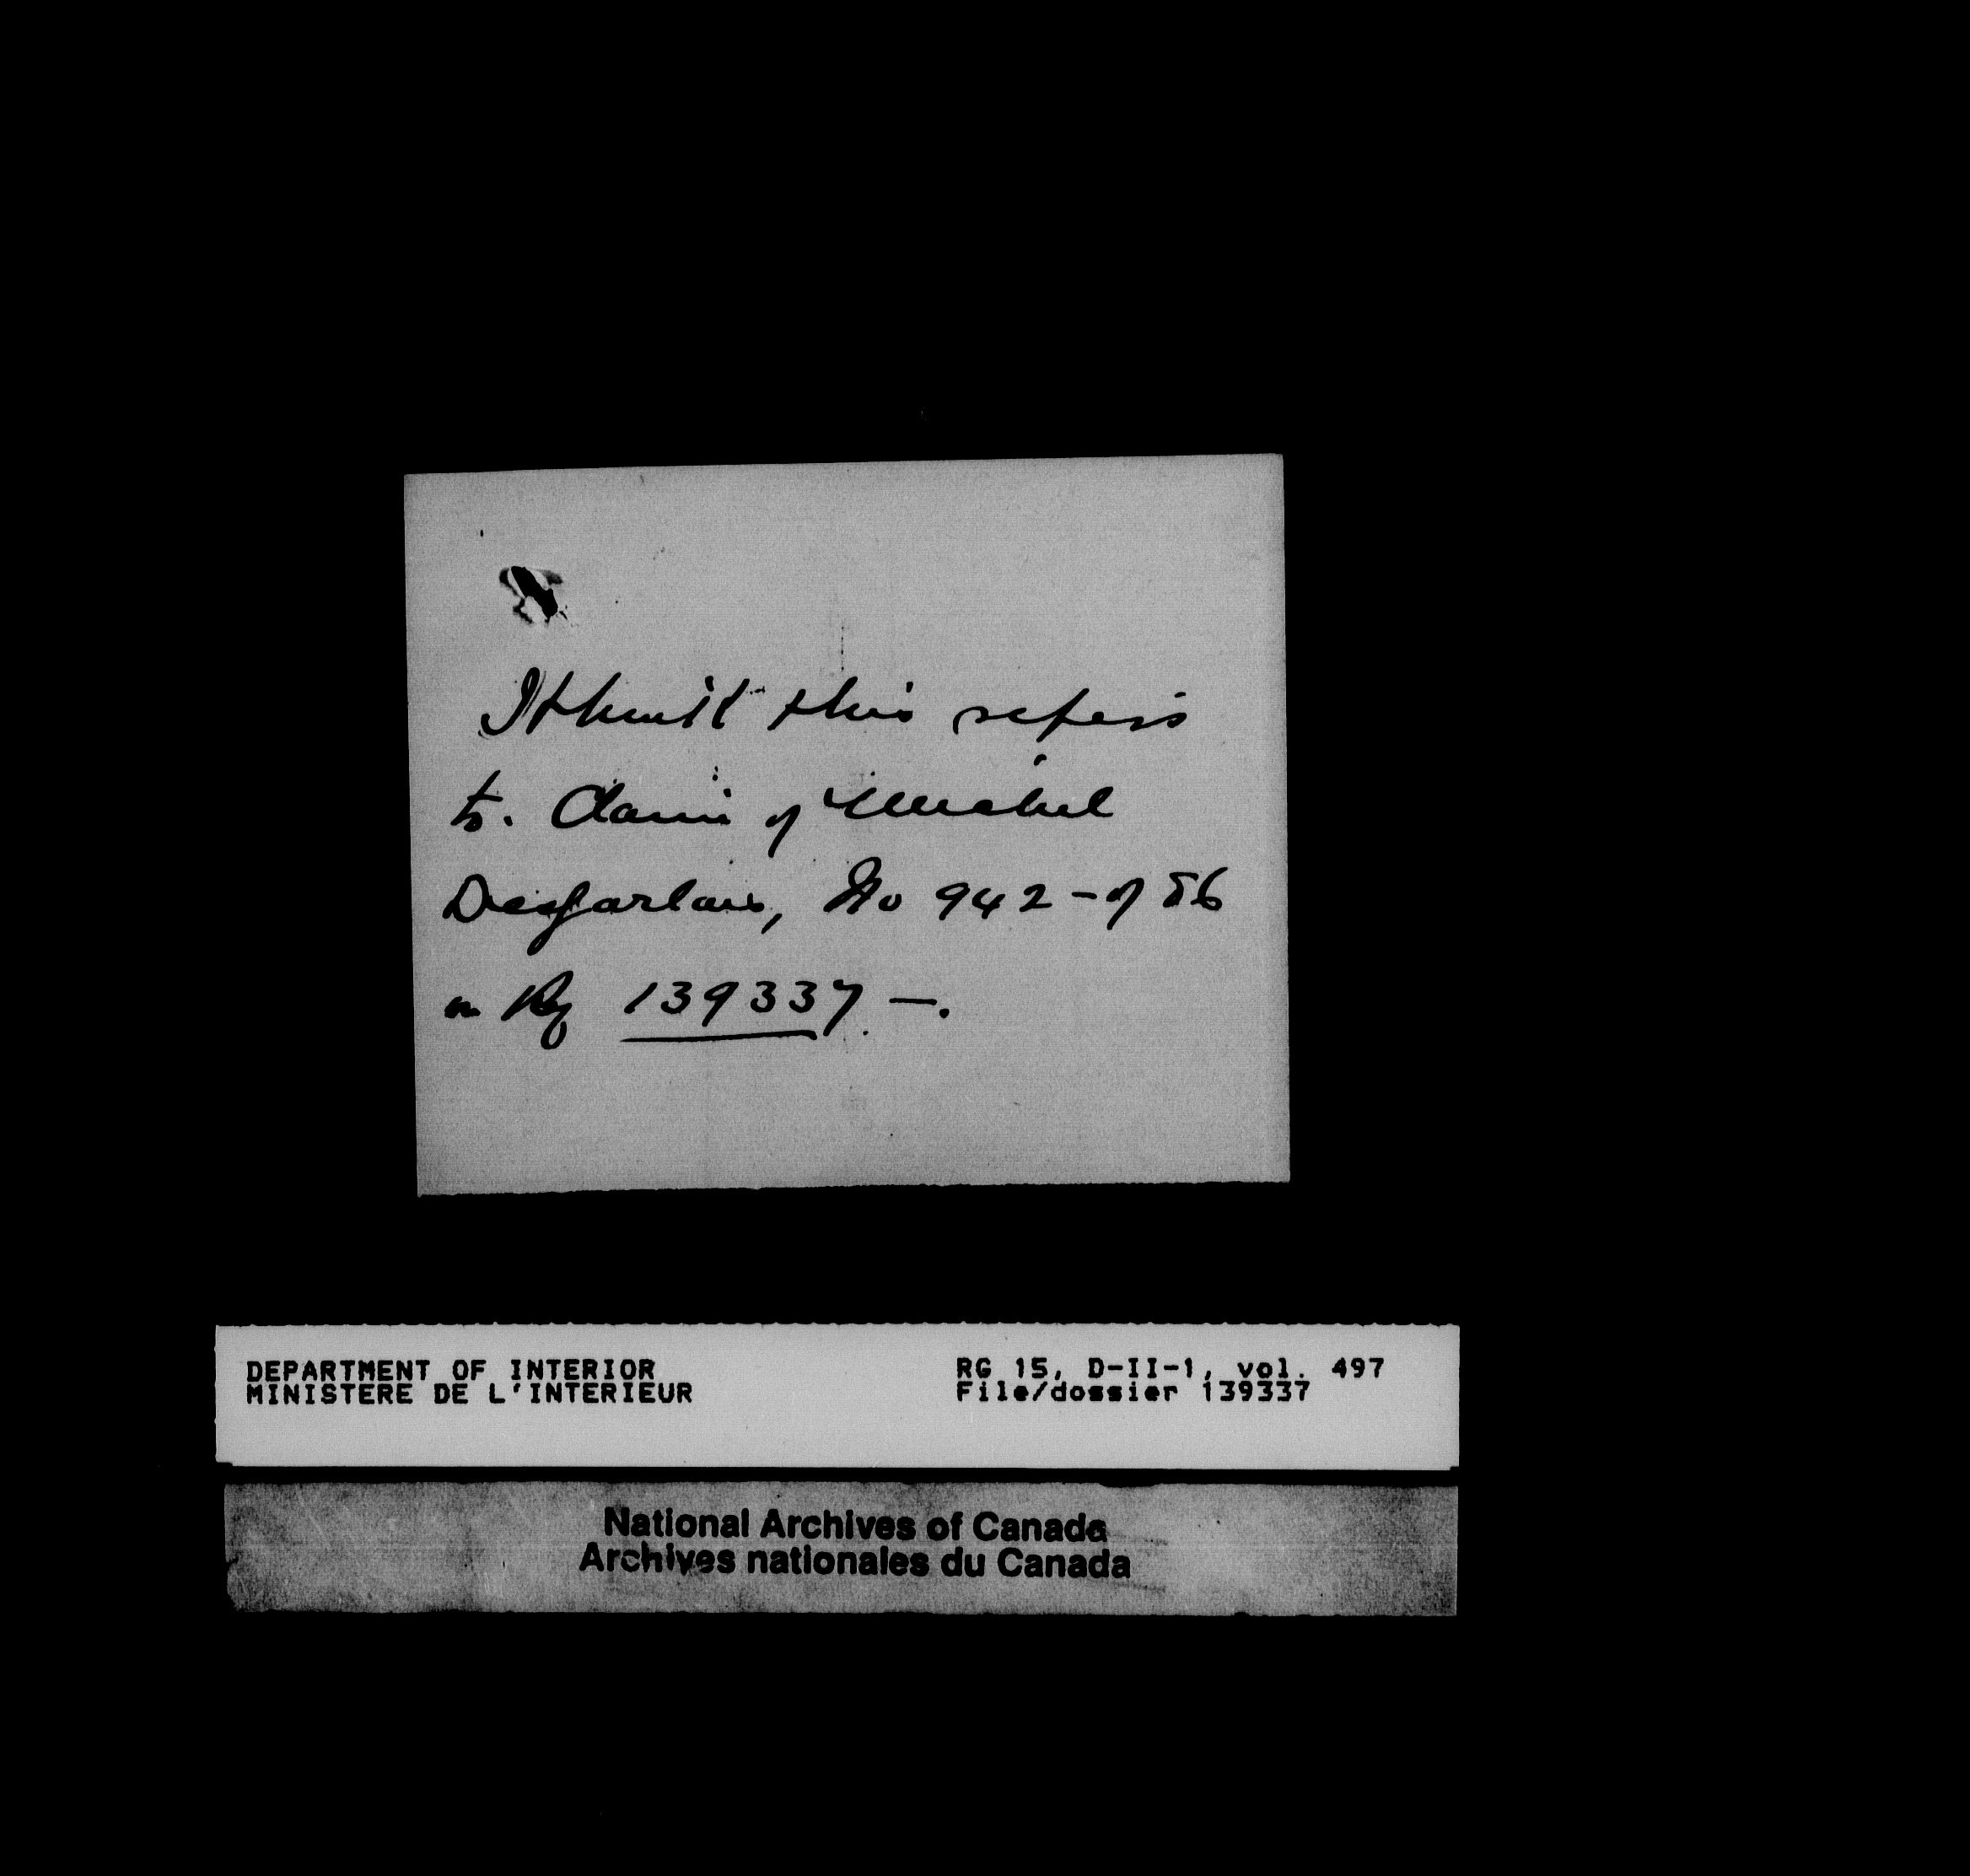 I think this refers
to. Claim of Michel
Desjarlais, No 942 - of 86
on Rg 139337 -.
DEPARTMENT OF INTERIOR
MINISTERE DE L'INTERIEUR
RG 15, D-II-1, vol. 497
File/dossier 139337
National Archives of Canada
Archives nationales du Canada